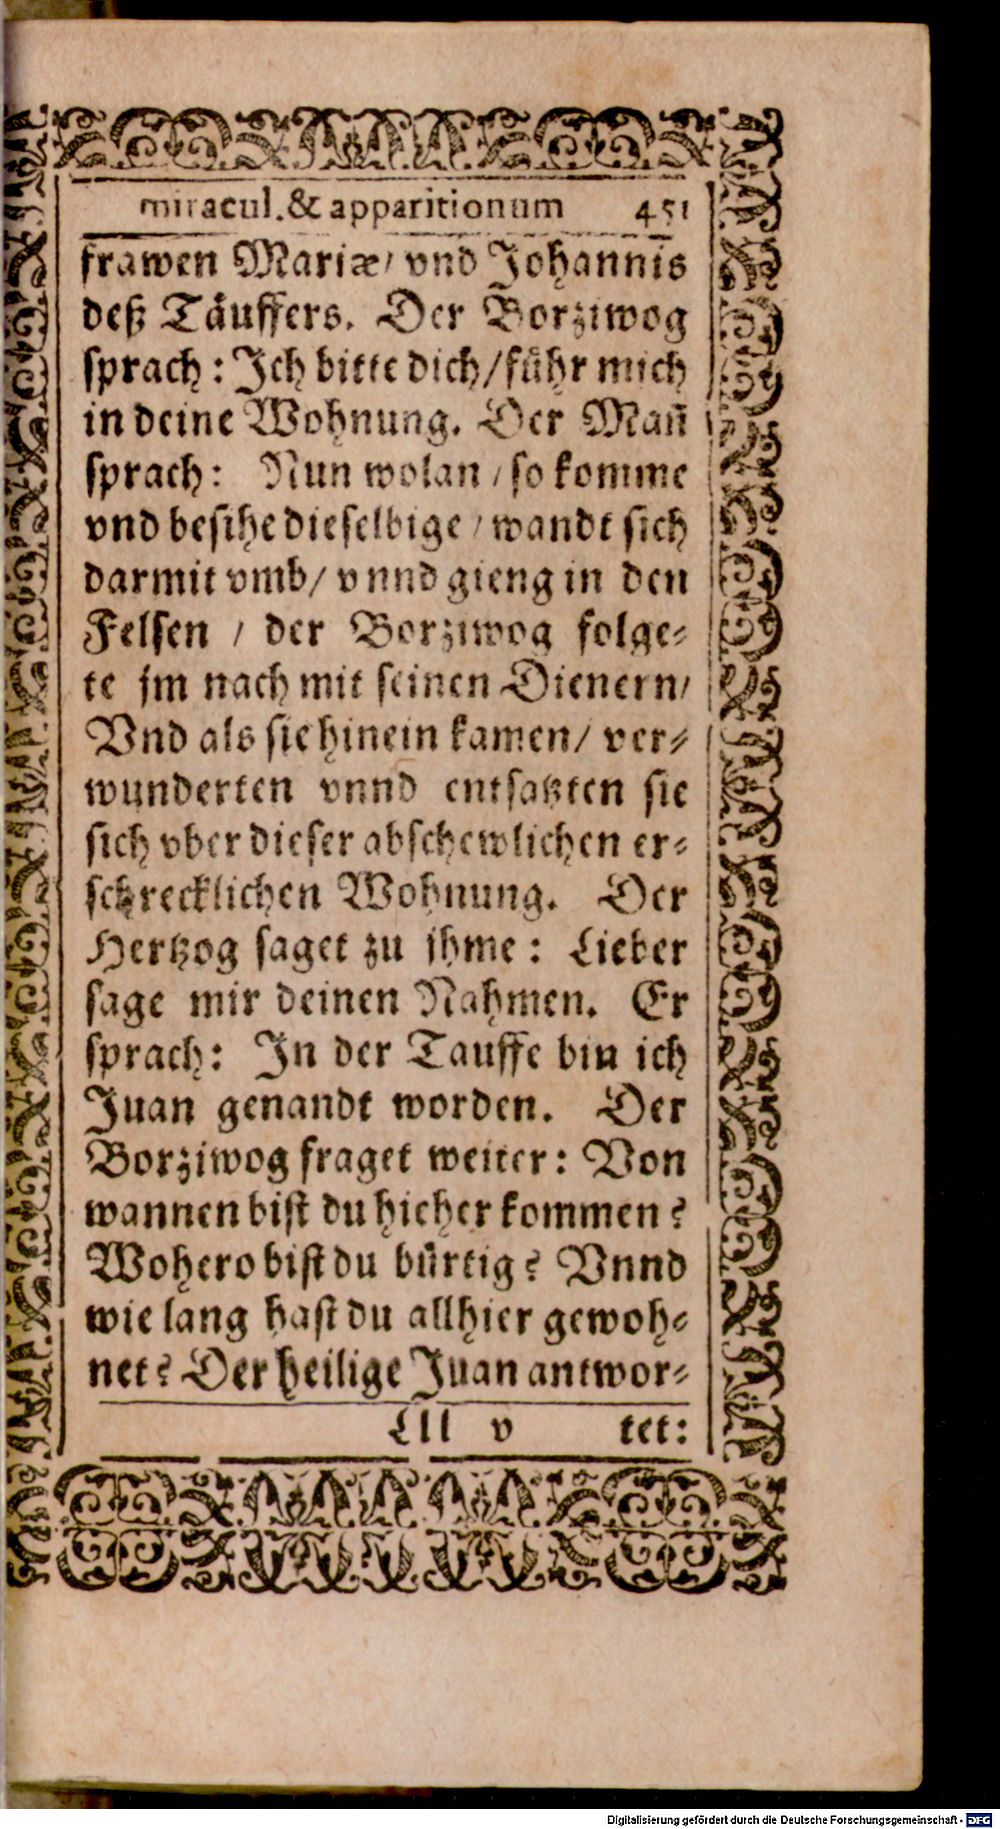 miracul. & apparitionum 451
frawen Mariæ / vnd Johannis
deß Täuffers. Der Borziwog
sprach: Ich bitte dich / führ mich
in deine Wohnung. Der Mañ
sprach: Nun wolan / so komme
vnd besihe dieselbige / wandt sich
darmit vmb / vnnd gieng in den
Felsen / der Borziwog folge-
te jm nach mit seinen Dienern /
Vnd als sie hinein kamen / ver-
wunderten vnnd entsatzten sie
sich vber dieser abschewlichen er-
schrecklichen Wohnung. Der
Hertzog saget zu ihme: Lieber
sage mir deinen Nahmen. Er
sprach: In der Tauffe bin ich
Juan genandt worden. Der
Borziwog fraget weiter: Von
wannen bist du hieher kommen?
Wohero bist du bürtig? Vnnd
wie lang hast du allhier gewoh-
net? Der heilige Juan antwor-
Lll v tet:
Digitalisierung gefördert durch die Deutsche Forschungsgemeinschaft - DFG